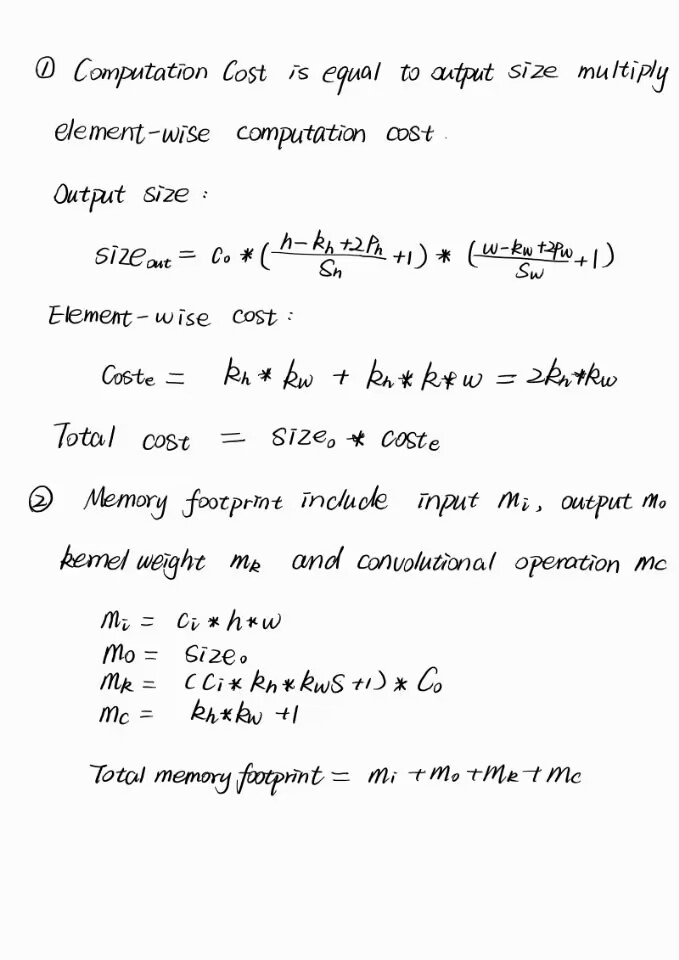 ① Computation Cost is equal to output size multiply
element-wise computation cost.
Output size:
size_out = C_o * ( (h - k_h + 2P_h) / S_h + 1) * ( (w - k_w + 2P_w) / S_w + 1)
Element-wise cost:
Cost_e = k_h * k_w + k_h * k * w = 2k_h * k_w
Total cost = size_o * cost_e
② Memory footprint include input m_i, output m_o
kernel weight m_k and convolutional operation mc
m_i = C_i * h * w
mo = size_o
m_k = (C_i * k_h * k_w s + 1) * C_o
mc = k_h * k_w + 1
Total memory footprint = m_i + m_o + m_k + m_c